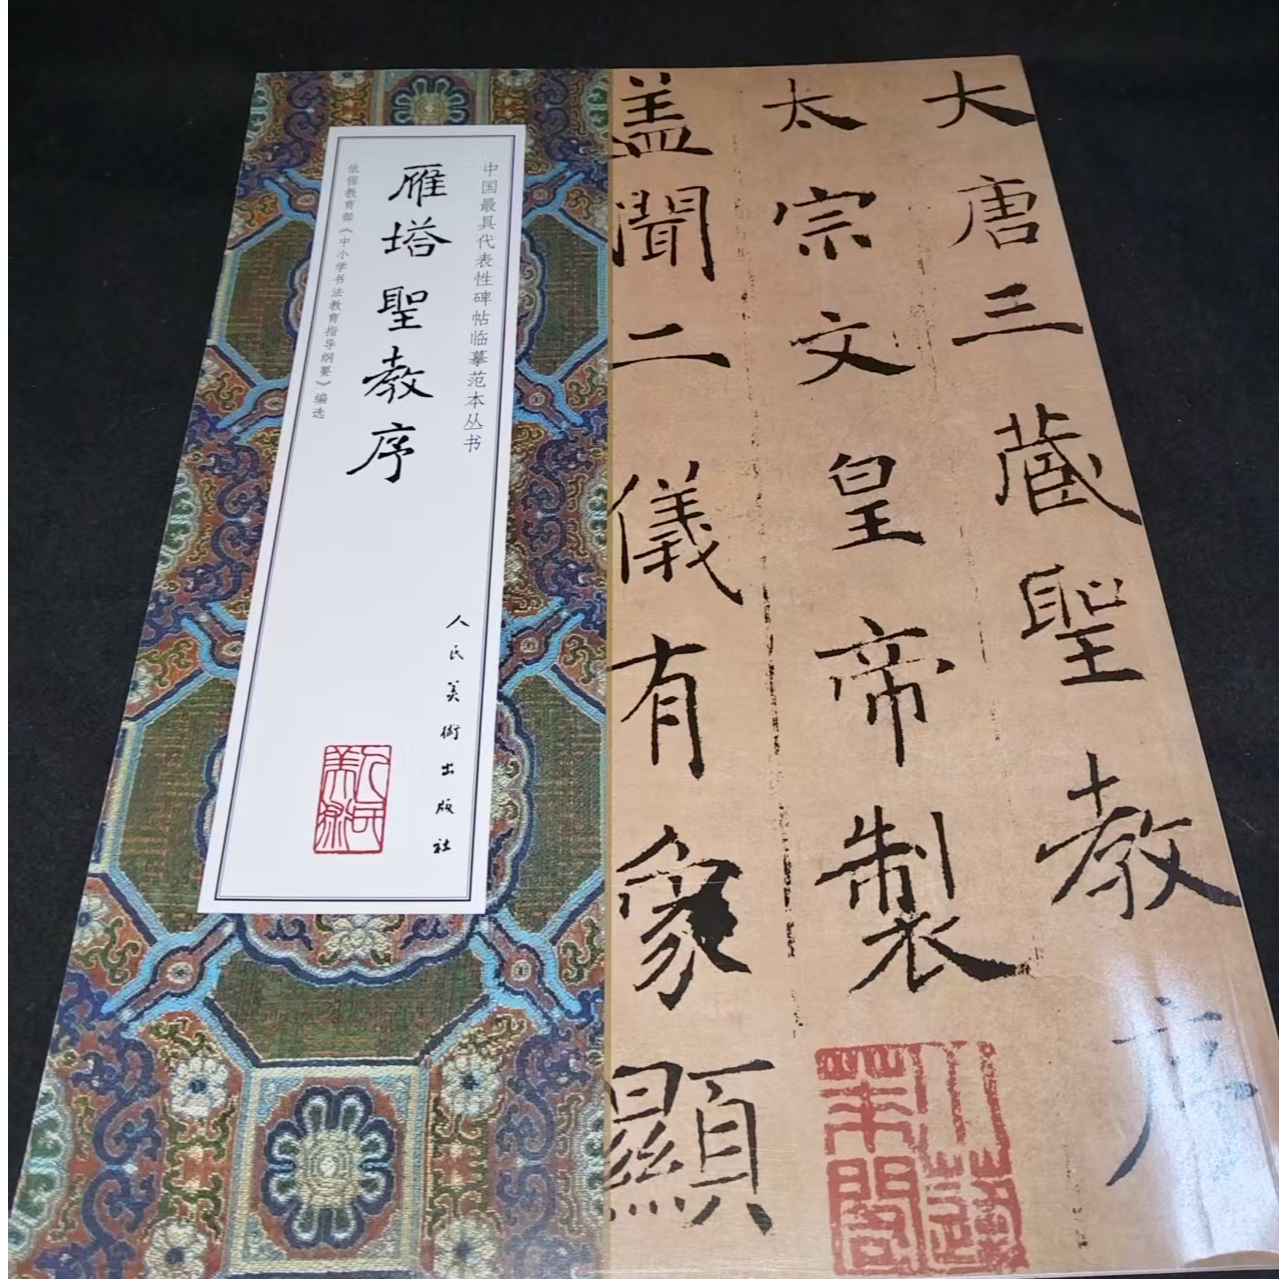 中国最具代表性碑帖临摹范本丛书
雁塔聖教序
依据教育部《中小学书法教育指导纲要》编选
人民美術出版社
人民美術
大唐三藏聖教序
太宗文皇帝製
盖聞二儀有象顯